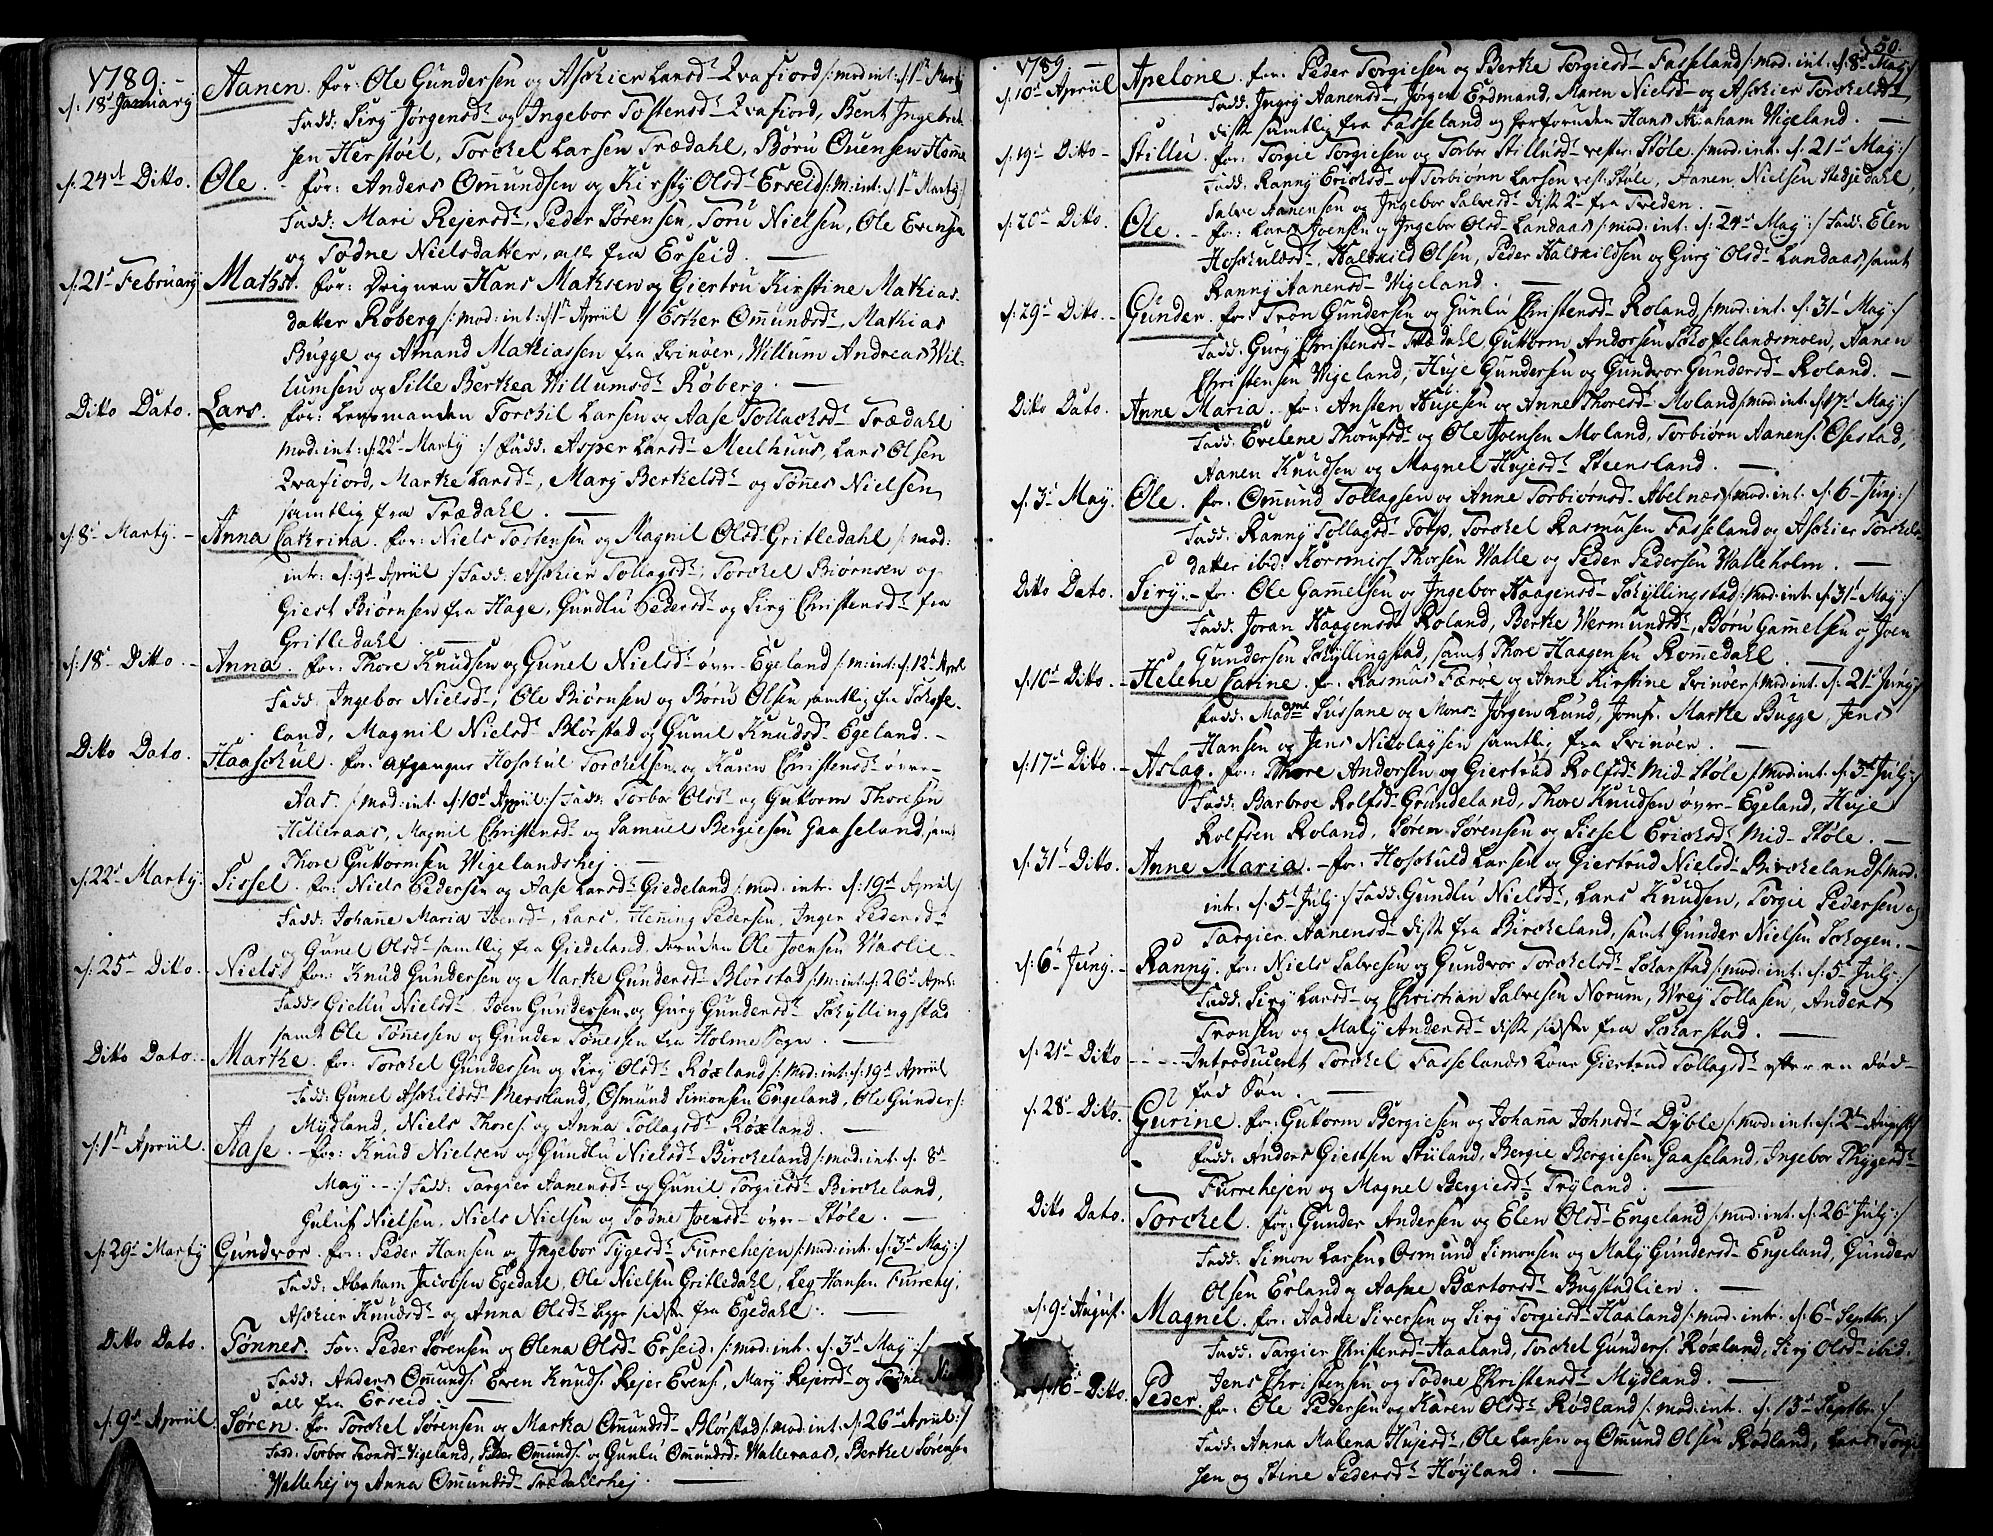 1789.
d: 18t January Aanen. for: Ole Gundersen og Aschier Larsd. Qvafiord /: mod: int: d: 1te Marty
Fadd: Siry Jørgensd. og Ingebor Tostensd. Qvafiord, Bent Ingebret-
sen Herstøel, Torckel Larsen Trædahl, Børu Evensen Homme
d: 24d Ditto. Ole. - for: Anders Omundsen og Kirsty Olsd. Erseid /: m: int: d: 1te Marty:/
Fadd: Mari Rejersd., Peder Sørensen, Toru Nielsen, Ole Evensen
og Todne Nielsdatter, all fra Erseid.
d: 21t February Mathst. for: Hans Mathsen og Giertru Kirstine Mathias-
datter Røberg /: mod: int: 1te Apriil :/ Esther Omundsd., Mathias
Bugge og Amand Mathiassen fra Svinøer, Willum Andreas Wil-
lumsen og Sille Berthea Willumsd. Røberg.
Ditto Dato. Lars. for: Lensmanden Torckil Larsen og Aase Tollachsd. Trædahl
mod: int: d: 22d Marty :/ Fadd: Asper Larsd. Meelhuus, Lars Olsen
Qvafiord, Marthe Larsd., Mary Berthelsd. og Tønes Nielsen
samtlig fra Trædahl.
d: 8t Marty. - Anna Cathrina. for: Niels Tostensen og Magnil Olsd. Gritledahl /: mod:
int: d: 9d Apriil :/ Fadd: Aschier Tollagsd., Torckel Biørnsen og
Giest Biørnsen fra Hage, Gundlu Pedersd. og Siry Christensd. fra
Gritledahl.
d: 18t Ditto. - Anna. for: Thore Knudsen og Gunel Nielsd. øvre Egeland /: m: int: d: 12t April
Fadd: Ingebor Nielsd., Ole Biørnsen og Børu Olsen samtlig fra Schoffe-
land, Magnil Nielsd. Blørstad og Gunil Knudsd. Egeland. -
Ditto Dato. Haaschul. for: Afgangne Hoschul Torckelsen og Karen Christensd. øvre-
Aas. /: mod: int. d: 10d Apriil :/ Fadd: Torbor Olsd. og Guttorm Thoresen
Hilleraas, Magnil Christensd. og Samuel Bergiesen Gaaseland, samt
Thore Guttormsen Wigelandshej.
d: 22t Marty. Sissel. for: Niels Pedersen og Aase Larsd. Giedeland /: mod: int: d: 19d Apriil /
Fadd: Johanne Maria Joensd., Lars, Heming Pedersen, Inger Pedersd.
og Gunel Olsd. samtlig fra Giedeland, foruden Ole Joensen Haslie. -
d: 25t Ditto. Niels. for: Knud Gundersen og Marthe Gundersd. Blørstad /: m: int: d: 26t April:
Fadd: Giellu Nielsd., Joen Gundersen og Gury Gundersd. Schyllingstad
samt Ole Tønessen og Gunder Tønessen fra Holme Sogn.
Ditto Dato. Marthe. for: Torckel Gundersen og Siry Olsd. Røxland /: mod: int: d: 19d Apriil
Fadd: Gunel Aschildsd. Mersland, Osmund Simonsen Engeland, Ole Gunders:
Mydland, Niels Thores. og Anna Tollagsd. Røxland.
d: 1te Apriil. Aase. - for: Knud Nielsen og Gundlu Nielsd. Birckeland /: mod: int. d. 8d
May. - :/ Fadd: Targier Aanensd. og Gunil Torgiesd. Birckeland,
Guluf Nielsen, Niels Nielsen og Todne Joensd. øvre Støle.
d: 29t Marty Gundvor. for: Peder Hansen og Ingebor Tygesd. Furrehejen /: mod: int. d. 3d May:/
Fadd: Abraham Jacobsen Egedahl, Ole Nielsen Gritledahl, Leg Hansen Furrehej,
Aschier Knudsd. og Anna Olsd. begge sidste fra Egedahl.
Ditto Dato. Tønnes. For: Peder Sørensen og Olena Olsd. Erseid. /: mod: int. d. 3d May :/
Fadd: Anders Omunds: Even Knuds: Rejer Evens:, Mary Rejersd. og Todne
all fra Erseid.
d: 9d Apriil. Søren. for: Torckel Sørensen og Martha Omundsd. Blørstad /: mod: int: d: 26d Apriil :/
Fadd: Torbor Tronsd. Wigeland, Peder Omunds: og Gunlu Omundsd. Walleraas, Berthel Sørensen
Wallehej og Anna Omundsd. Trædahlshej.
50.
1789.
d: 10d Apriil Apelone. for: Peder Torgiesen og Berthe Torgiesd. Fasseland /: mod: int. d. 8d May:/
Fadd: Ingry Aanensd., Jørgen Erdmand, Maren Nielsd. og Aschier Torckelsd.,
disse samtlig fra Fasseland og forforuden Hans Abraham Wigeland.
d: 19t Ditto - Stillu. for: Torgie Torgiesen og Torbor Stillusd. vester Støle. /: mod: int. d. 21d May:/
Fadd: Ranny Erichsd. og Torbiønn Larsen vest. Støle, Aanen Nielsen Stedjedahl,
Salve Aanensen og Ingebor Salvesd. disse 2de fra Tveden.
d: 20d Ditto. Ole. - for: Lars Joensen og Ingebor Olsd. Landaas /: mod: int: d: 24d May :/ Fadd: Elen
Hoschuldsd., Halfvild Olsen, Peder Halfvildsen og Gury Olsd. Landaas, samt
Ranny Aanensd. Wigeland.
d: 29t Ditto. - Gunder. for: Tron Gundersen og Gunlu Christensd. Roland, /: mod: int. d: 31t May:/
Fadd: Gury Christensd. Trædahl, Guttorm Andersen Schoffelandsmoen, Aanen
Christensen Wigeland, Huje Gundersen og Gundvor Gundersd. Roland.
Ditto Dato. Anne Maria. for: Ansten Hujesen og Anne Thoresd. Moland /: mod: int. d. 17d May:/
Fadd: Evelene Thorufsd. og Ole Joensen Moland, Torbiørn Aanens: Osestad,
Aanen Knudsen og Magnel Hujesd. Steensland.
d: 3t May. Ole. for: Omund Tollagsen og Anne Torbiørnsd. Abelnæs /: mod: int. d. 6t Juny:/
Fadd: Ranny Tollagsd. Torp, Torckel Rasmusen Fasseland og Aschier Torckels-
datter ibd: Korsmies Thorsen Walle og Peder Pedersen Walleholm.
Ditto Dato. Siry. - for. Ole Gamelsen og Ingebor Haagensd. Schyllingstad /: mod: int. d. 31t May:/
Fadd: Joran Haagensd. Roland, Berthe Wermundsd., Børu Gamelsen og Joen
Gundersen Schyllingstad, samt Thore Haagensen Romedahl.
d: 10t Ditto. Helene Carine. for: Rasmus Færøe og Anne Kirstine Svinøer /: mod: int. d. 21t Juny
Fadd: Madme Sussane og Monsr: Jørgen Lund, Jomf. Marthe Bugge, Jens
Hansen og Jens Nicolaysen samtlig fra Svinøer.
d: 17t Ditto. - Aslag. for: Thore Andersen og Giertrud Rolfsd. Mid-Støle /: mod: int. d. 3d July:/
Fadd: Barbroe Rolfsd. Grundeland, Thore Knudsen øvre Egeland, Huje
Rolfsen Roland, Søren Sørensen og Sissel Erichsd. Mid-Støle.
d: 31t Ditto. Anne Maria. - for: Hoschuld Larsen og Giertrud Nielsd. Birckeland /: mod:
int. d. 5t July :/ Fadd: Gundlu Nielsd., Lars Knudsen, Torgie Pedersen og
Targier Aanensd. disse fra Birckeland, samt Gunder Nielsen Schogen. -
d: 6t Juny. - Ranny. for: Niels Salvesen og Gundvor Torckelsd. Scharstad /: mod: int. d. 5t July:/
Fadd: Siry Larsd. og Christian Salvesen Norum, Wrej Tollasen, Anders
Tronsen og Maly Andersd. disse sidste fra Scharstad.
d: 21t Ditto - - - - Introducent Torckel Fasselands Kone Giertrud Tollagsd. efter en Død-
fød Søn.
d: 28t Ditto. Gurine. for: Gutorm Bergiesen og Johanna Johnsd. Dyble /: mod: int: d: 2d August
Fadd: Anders Giestsen Stuland, Bergie Bergiesen Gaaseland, Ingebor Thygesd.
Furrehejen og Magnel Bergiesd. Tryland.
Ditto Dato. Torckel. for: Gunder Andersen og Elen Olsd. Engeland /: mod: int. d. 26t July:/
Fadd: Simon Larsen, Osmund Simonsen og Maly Gundersd. Engeland, Gunder
Olsen Erland og Aasne Bærtorsd. Bugstadlien.
d: 9t August. Magnel. for: Aadne Siversen og Siry Torgiesd. Haaland /: mod: int: d. 6t Septbr:/
Fadd: Targier Christensd. Haaland, Torckel Gunders: Røxland, Siry Olsd. ibid.
Jens Christensen og Todne Christensd. Mydland.
d: 16t Ditto. Peder. for: Ole Pedersen og Karen Olsd. Rødland /: mod: int. d. 13d Septbr:/
Fadd: Anna Malena Hujesd., Ole Larsen og Omund Olsen Rødland, Lars Torgie-
sen og Stine Pedersd. Høyland.